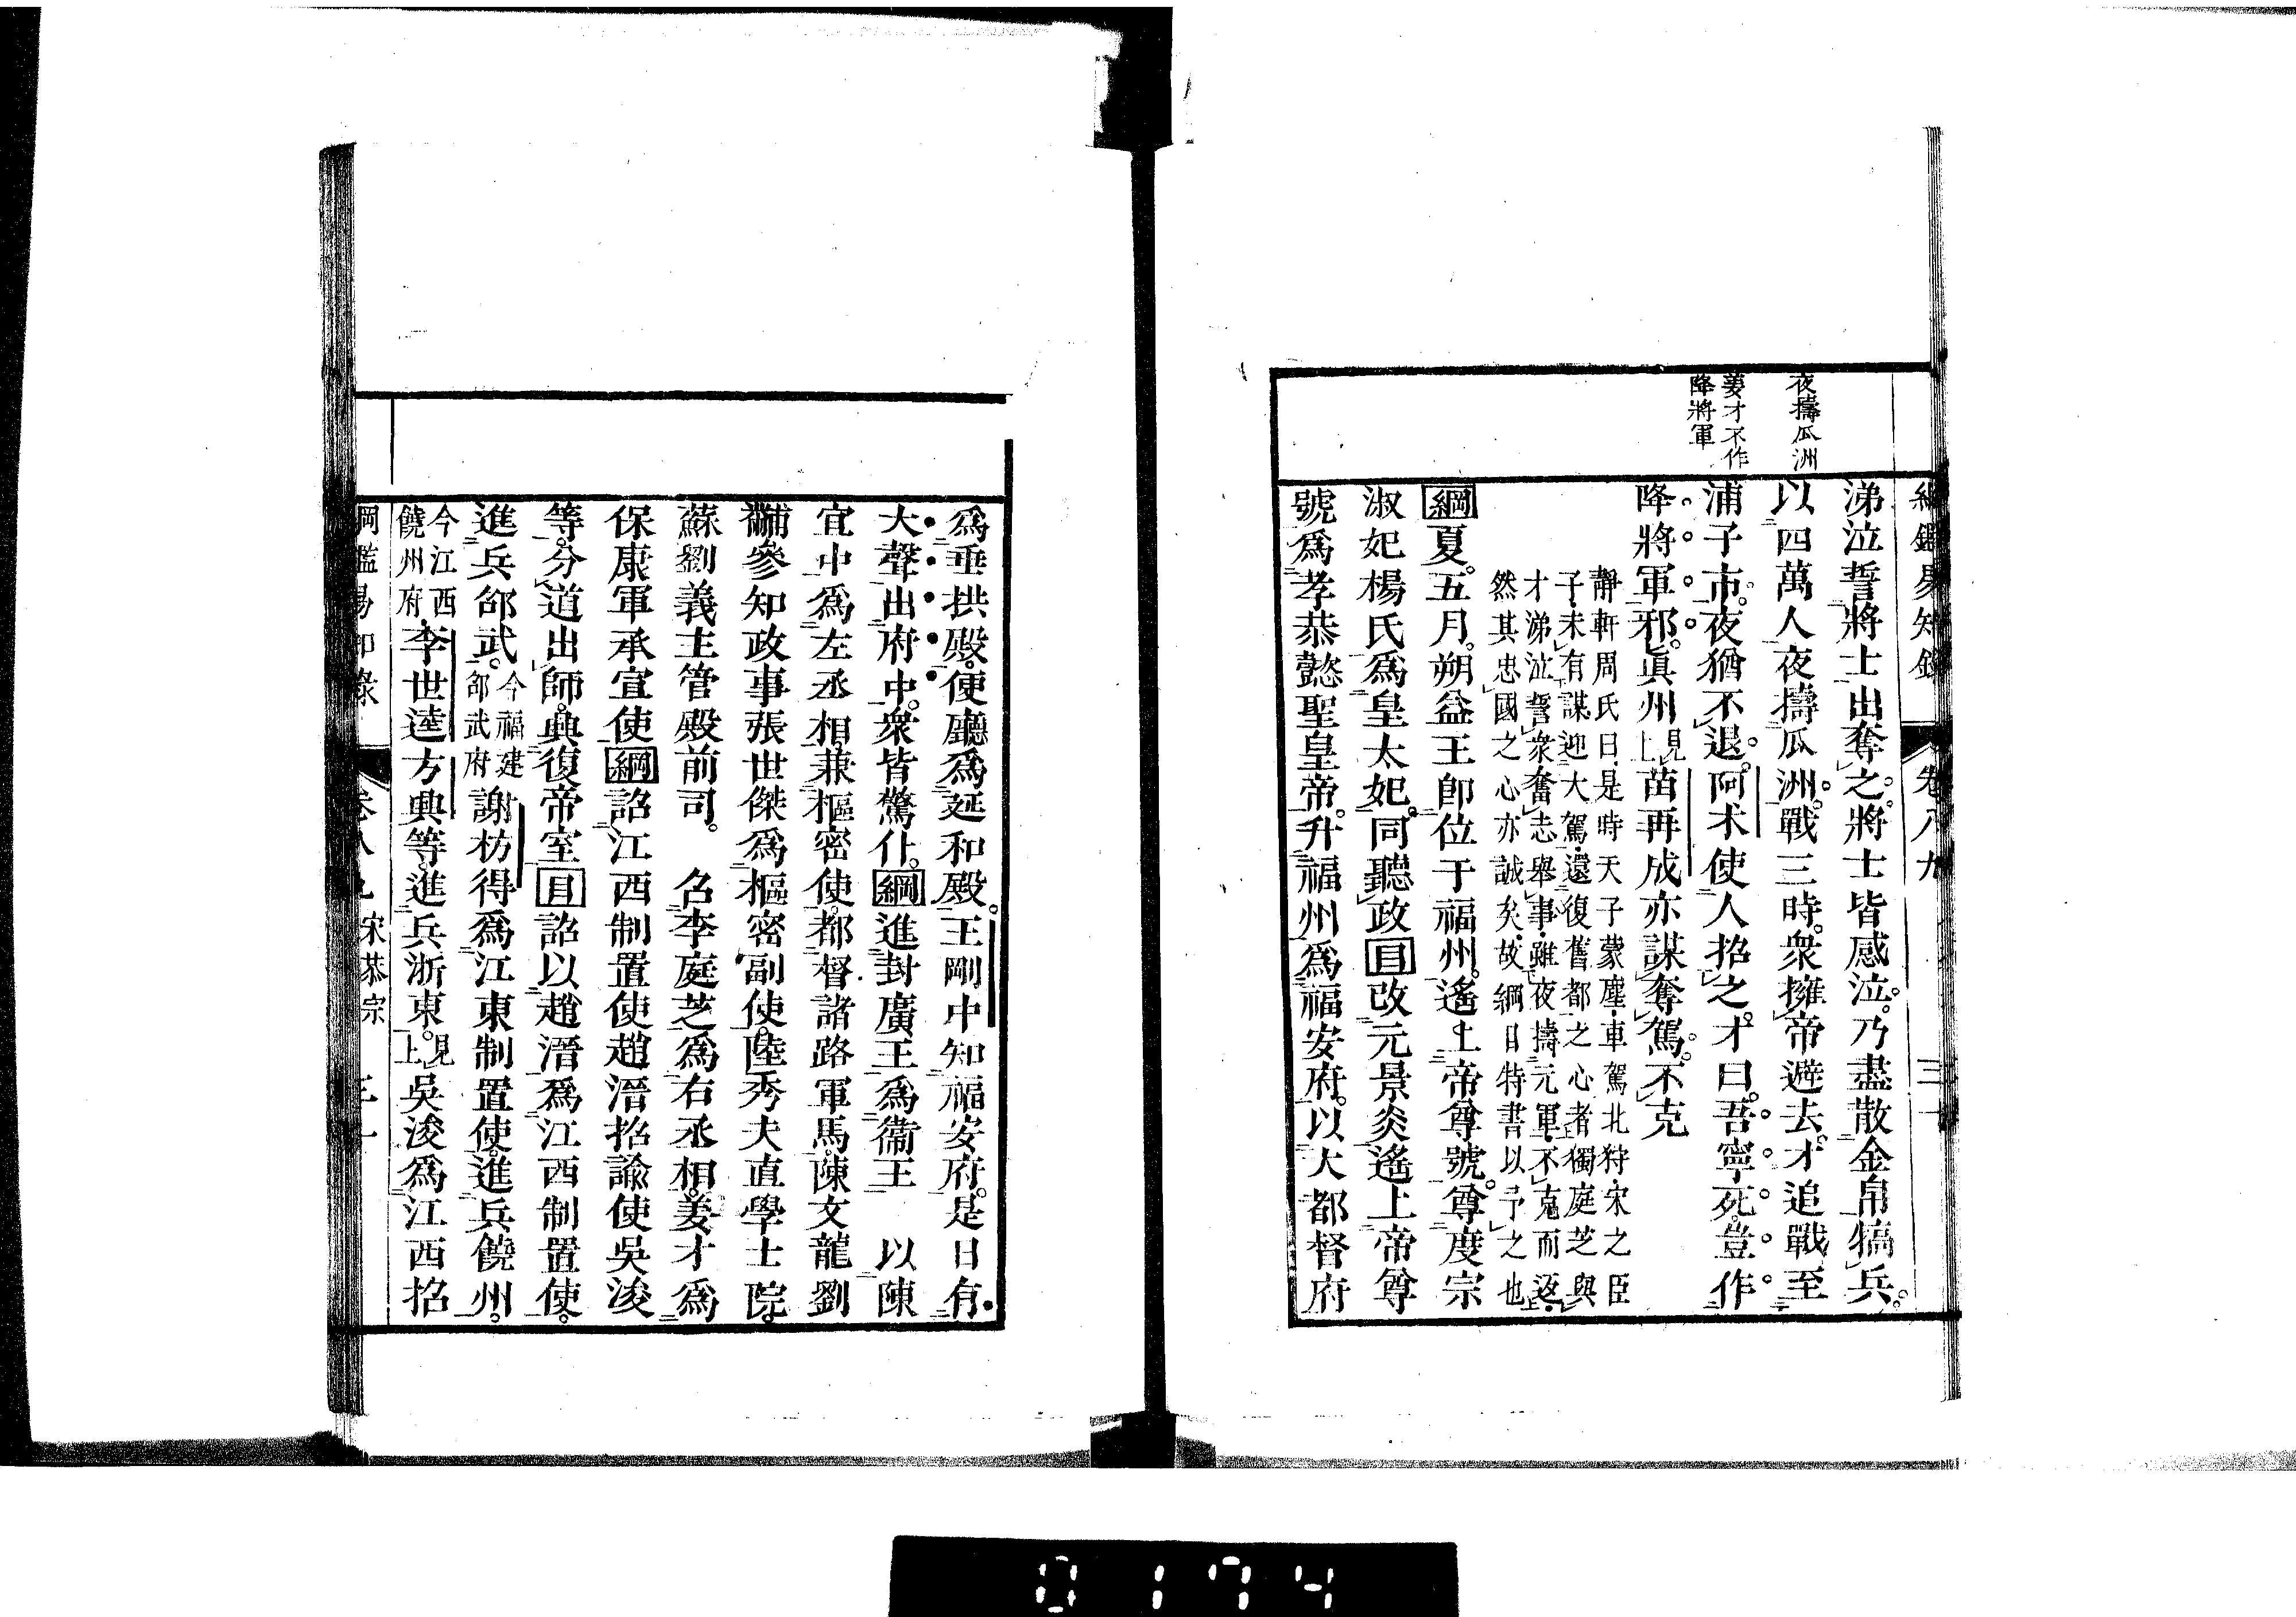 綱鑑易知錄 卷八九
夜擣瓜洲
姜才不作
降將軍
涕泣誓將士出奪之將士皆感泣乃盡散金帛犒兵
以四萬人夜擣瓜洲戰三時衆擁帝避去才追戰至
浦子市夜猶不退阿朮使人招之才曰吾寧死豈作
降將軍邪眞州見上苗再成亦謀奪駕不克
靜軒周氏曰是時天子蒙塵車駕北狩宋之臣
子未有謀迎大駕還復舊都之心者獨庭芝與
才涕泣誓衆奮志舉事雖夜擣元軍不克而返
然其忠國之心亦誠矣故綱目特書以予之也
綱夏五月朔益王卽位于福州遙上帝尊號尊度宗
淑妃楊氏爲皇太妃同聽政目改元景炎遙上帝尊
號爲孝恭懿聖皇帝升福州爲福安府以大都督府
爲垂拱殿便廳爲延和殿王剛中知福安府是日有
大聲出府中衆皆驚仆綱進封廣王爲衞王 以陳
宜中爲左丞相兼樞密使都督諸路軍馬陳文龍劉
黼參知政事張世傑爲樞密副使陸秀夫直學士院
蘇劉義主管殿前司 召李庭芝爲右丞相姜才爲
保康軍承宣使綱詔江西制置使趙溍招諭使吳浚
等分道出師興復帝室目詔以趙溍爲江西制置使
進兵邵武今福建邵武府謝枋得爲江東制置使進兵饒州
今江西饒州府李世逵方興等進兵浙東見上吳浚爲江西招
綱鑑易知錄 卷八九 宋恭宗
0174